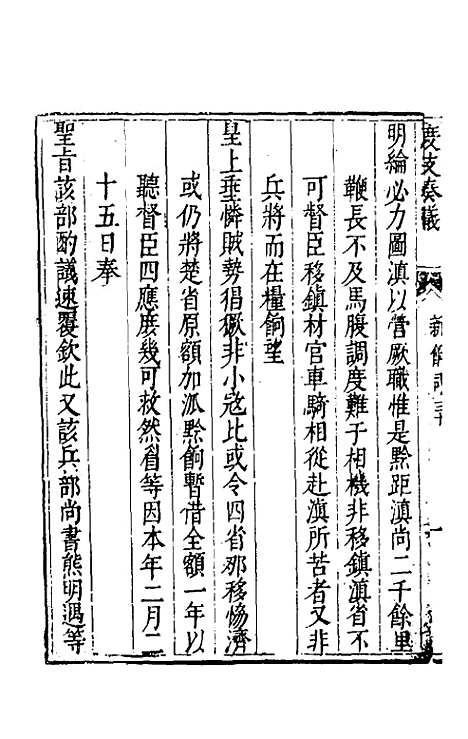 度支奏議
明綸必力圖滇以管厥職惟是黔距滇尚二千餘里
鞭長不及馬腹調度難于相機非移鎮滇省不
可督臣移鎮材官車騎相從赴滇所苦者又非
兵將而在糧餉望
皇上垂憐賊勢猖獗非小寇比或令四省那移恊濟
或仍將楚省原額加派黔餉暫借全額一年以
聽督臣四應庻幾可救然眉等因本年二月二
十五日奉
聖旨該部酌議速覆欽此又該兵部尚書熊明遇等